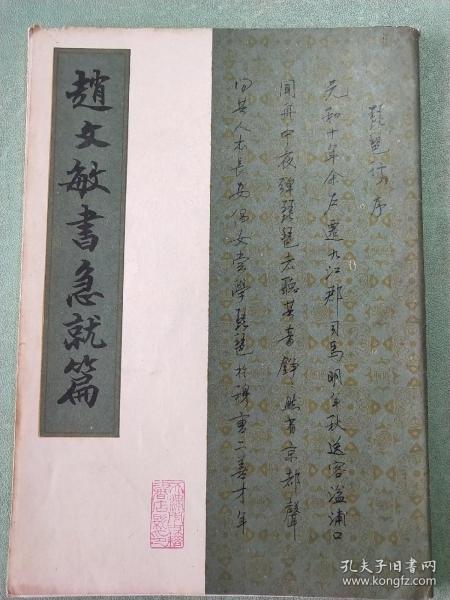 琵琶行序
元和十年余左遷九江郡司馬明年秋送客湓浦口
聞舟中夜彈琵琶者聽其音錚々然有京都聲
問其人本長安倡女嘗學琵琶於穆曹二善才年
趙文敏書急就篇
孔夫子旧书网
www.kongfz.com